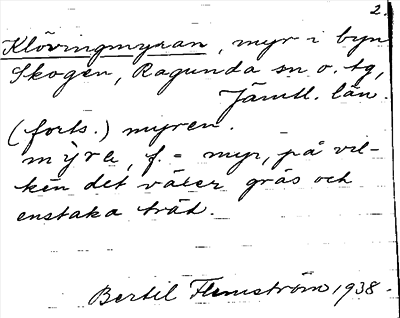 2.
Klövingmyran, myr i byn
Skogen, Ragunda sn o. tg,
Jämtl. län.
(forts.) myren.
mỳra, f. = myr, på vil-
ken det växer gräs och
enstaka träd.
Bertil Flemström 1938.